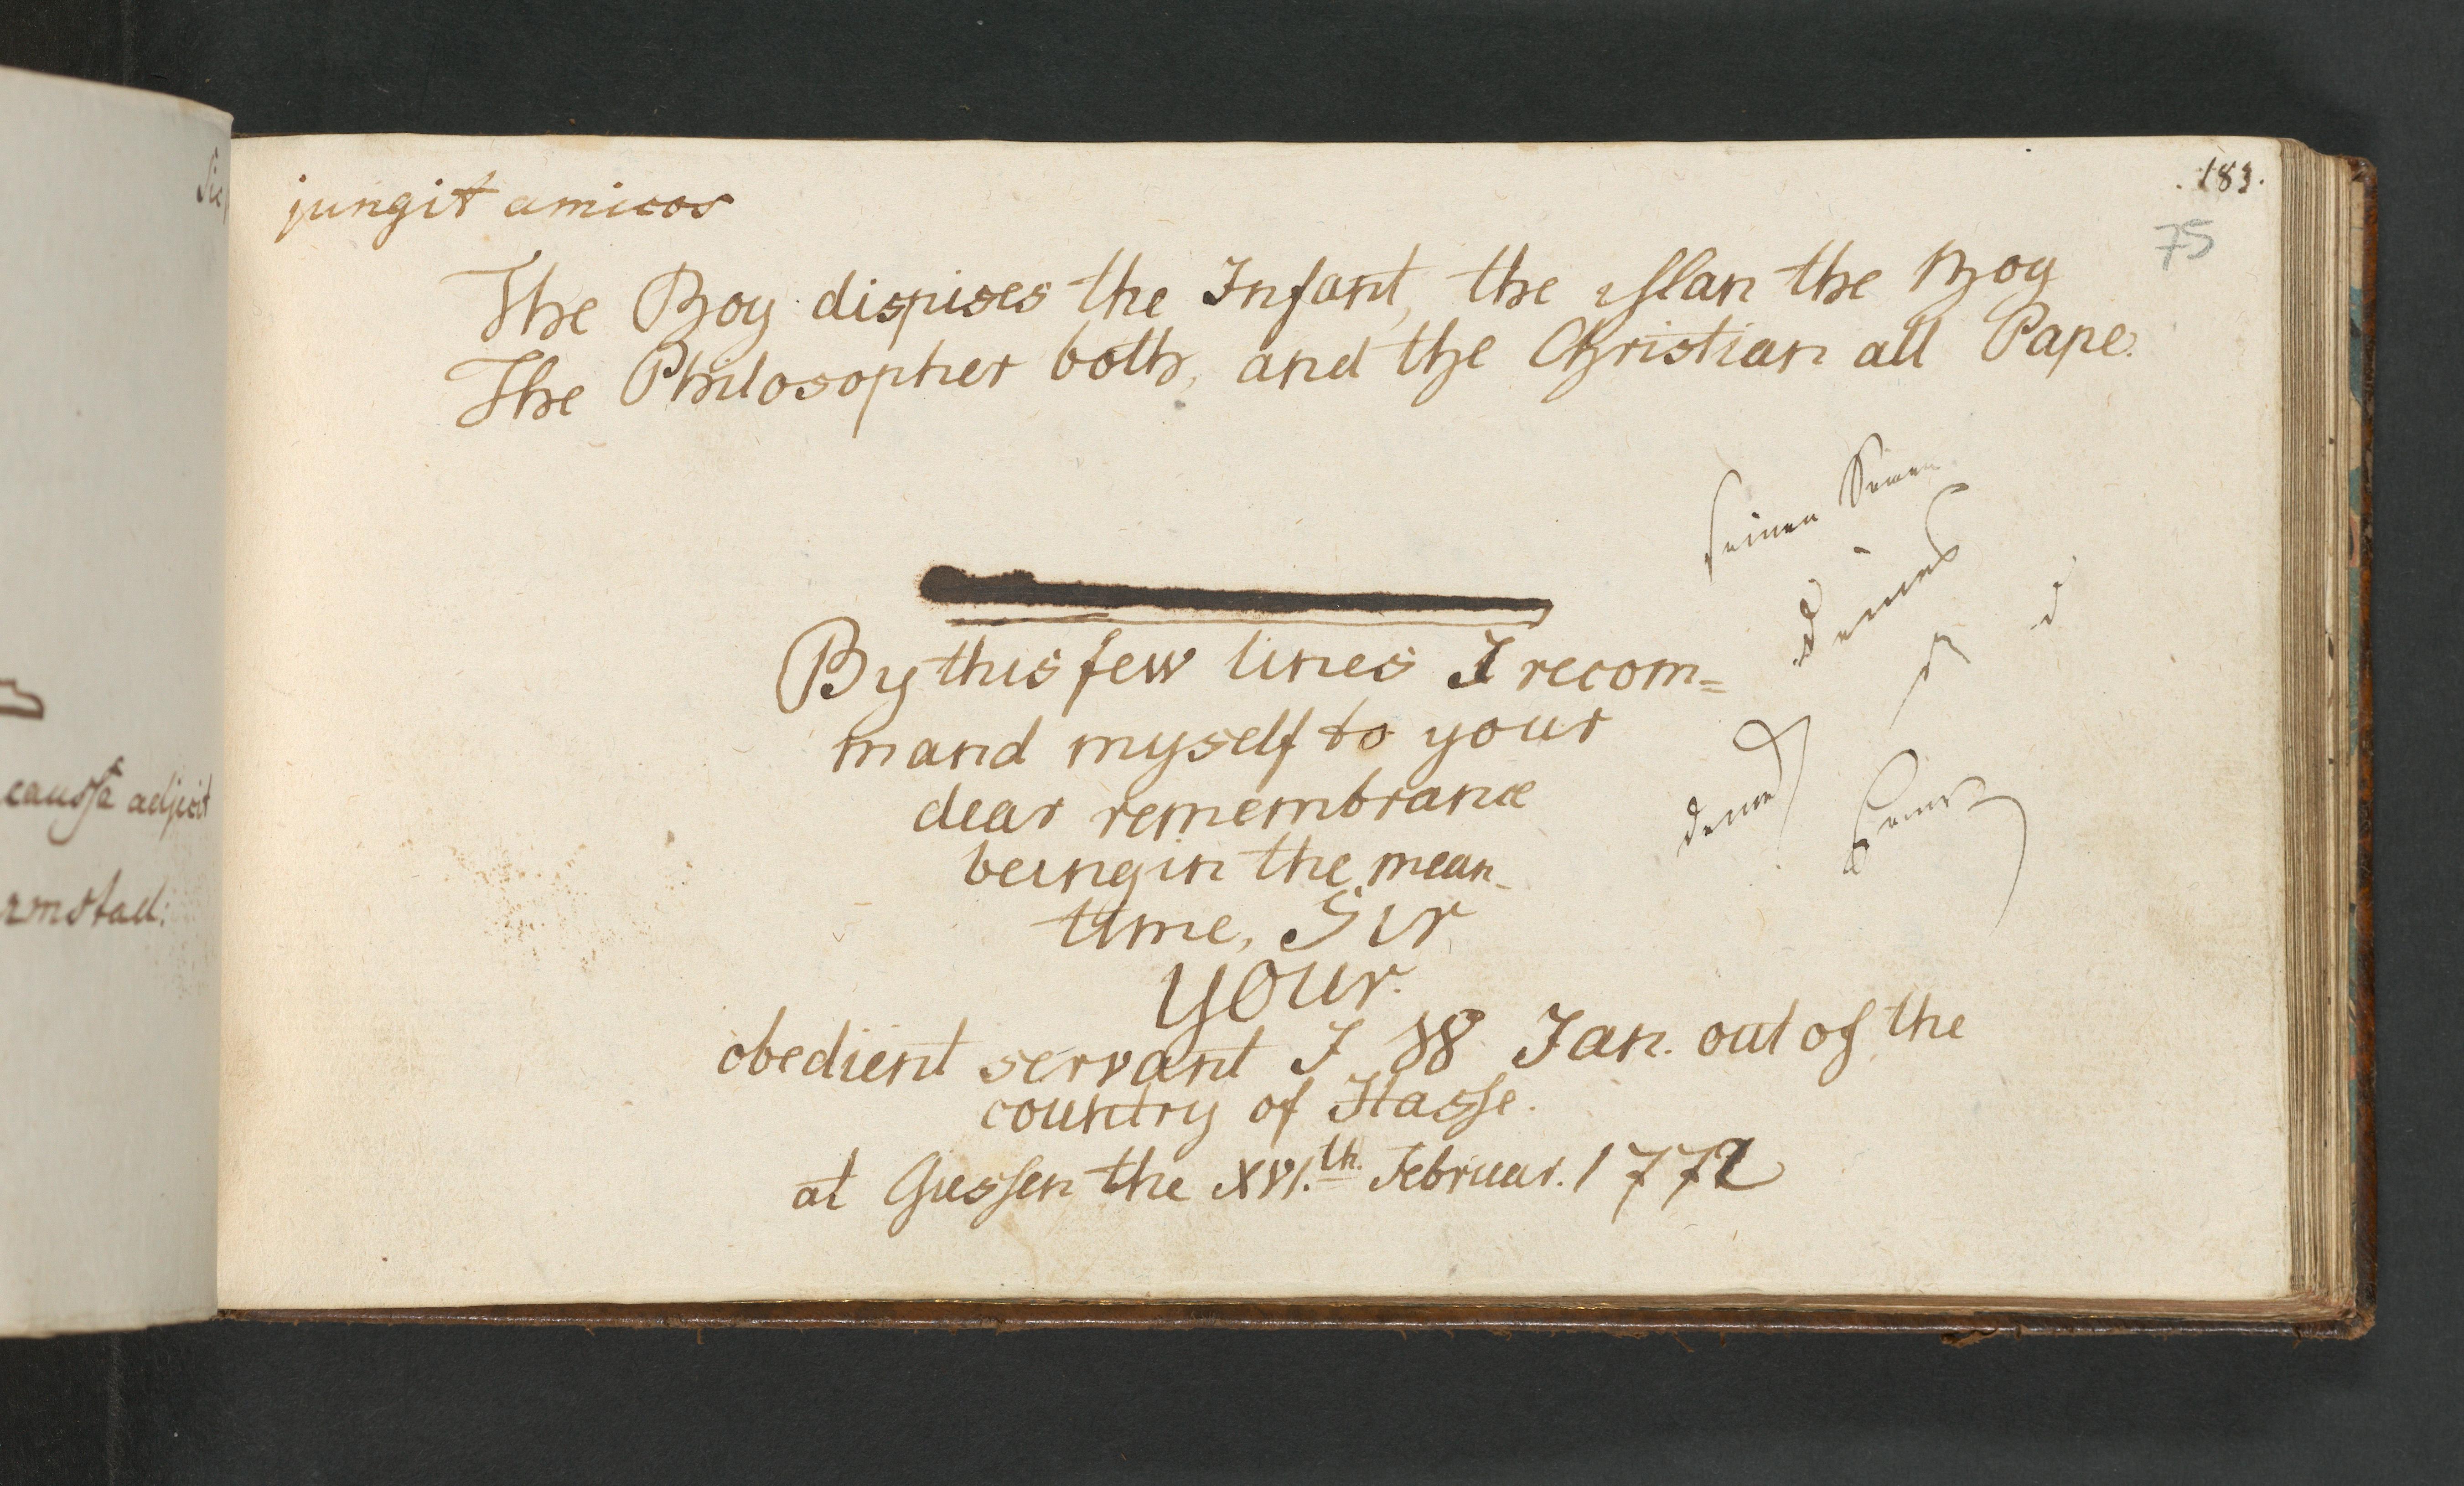 .183.
75
jungit amicos
The Boy dispises the Infant, the Man the Boy
The Philosopher both, and the Christian all Pape.
seinen
By this few lines I recom=
mand myself to your
dear remembrance
being in the mean
time, Sir
your.
obedient servant J W Jan. out of the
country of Hasse.
at Giessen the XVI.th Februar. 1772
caussâ adjicit